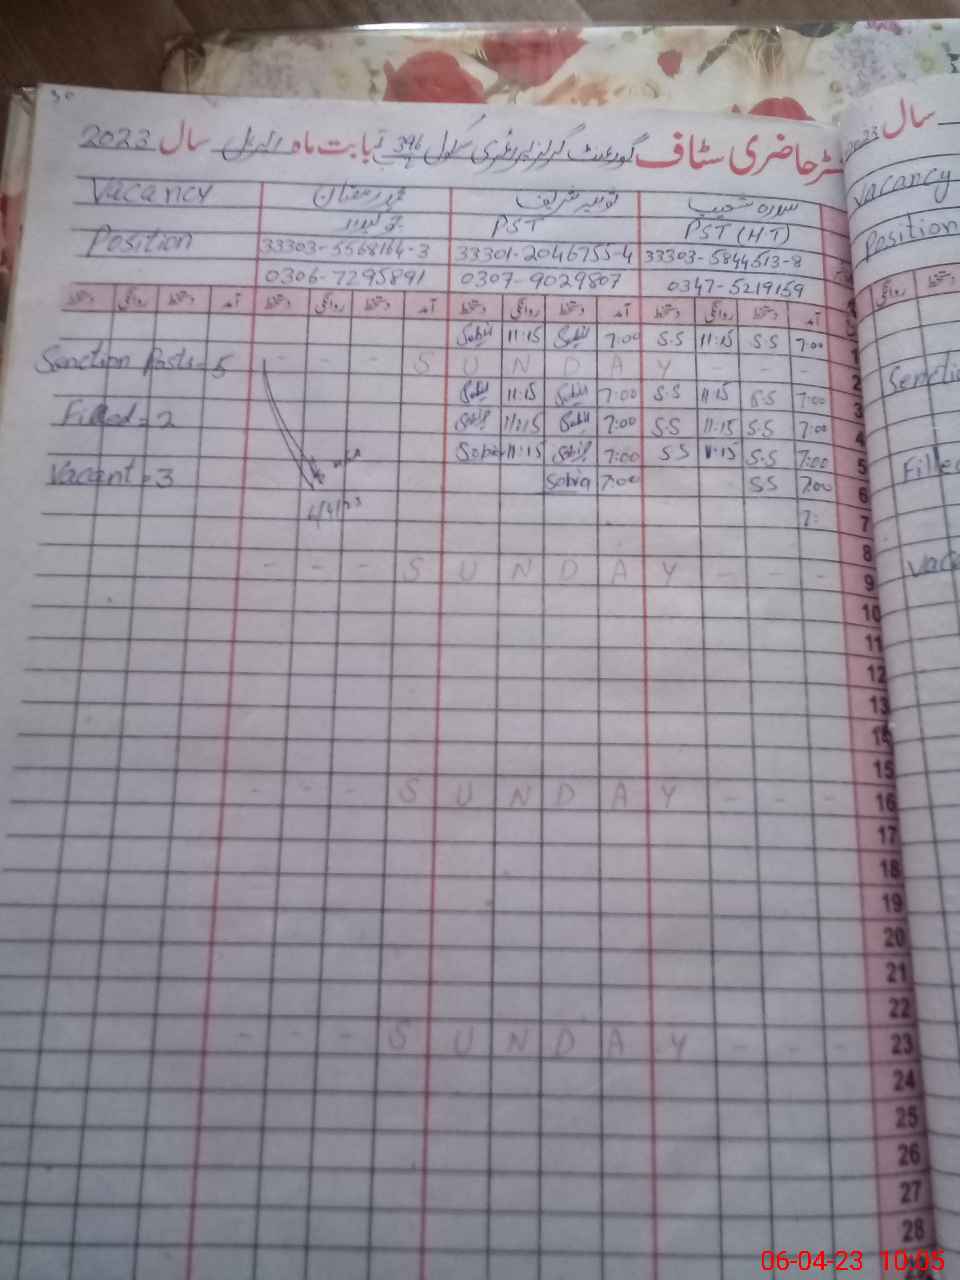 30
رجسٹر حاضری سٹاف گورنمنٹ گرلز پرائمری سکول 396 بابت ماہ اپریل سال 2023
سال 2023
Vacancy محمد رمضان شعیب
Vacancy
Position چوکیدار PST PST (H.T)
Position
33303-5568164-3 33301-2046755-4 33303-5844513-8
0306-7295891 0307-9029807 0347-5219159
دستخط روانگی دستخط آمد دستخط روانگی دستخط آمد دستخط روانگی دستخط آمد دستخط روانگی دستخط آمد
11:15 7:00 S.S 11:15 S.S 7:00 1
Senction Posts = 5 - - - S U N D A Y - - - 2
11:15 7:00 S.S 11:15 S.S 7:00 3
Filled = 2 11:15 7:00 S.S 11:15 S.S 7:00 4
Sobia 11:15 7:00 S.S 11:15 S.S 7:00 5
Vacant = 3 Sobia 7:00 S.S 7:00 6
7: 7
8
- - - S U N D A Y - - - 9
10
11
12
13
14
15
- - - S U N D A Y - - - 16
17
18
19
20
21
22
- - - S U N D A Y - - - 23
24
25
26
27
28
06-04-23 10:05